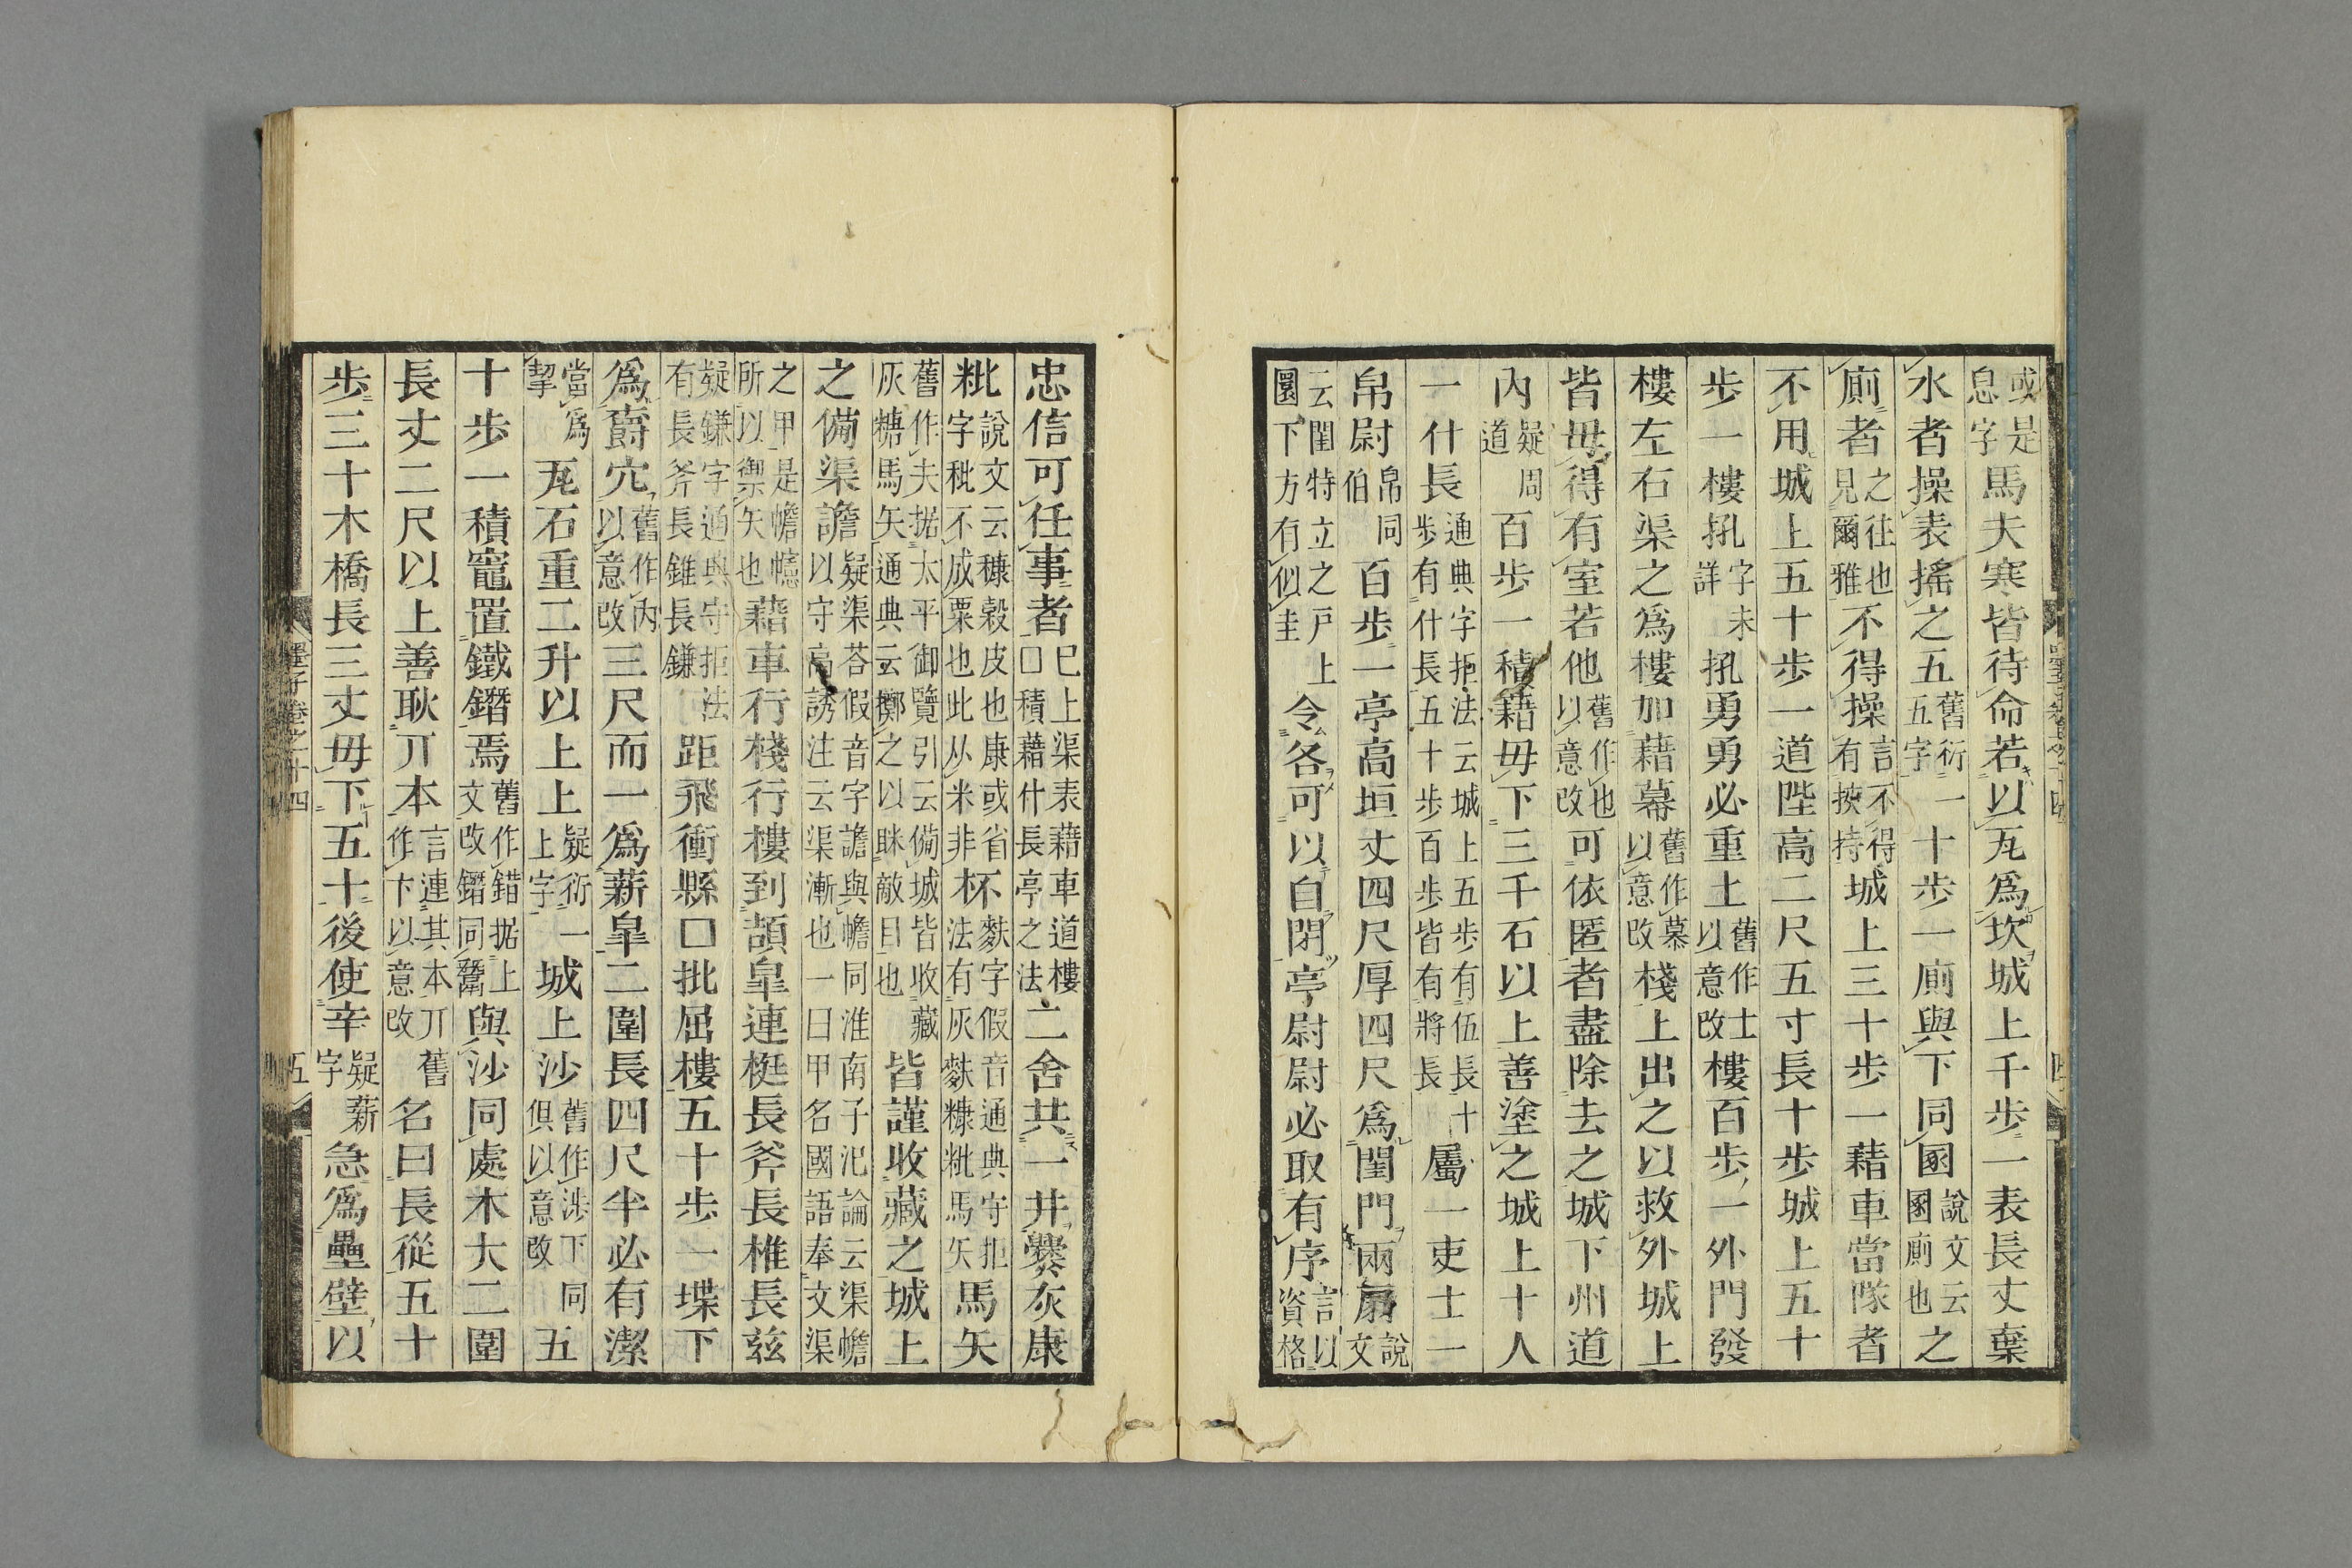 或是息字馬夫寒皆待命若以瓦爲坎城上千步一表長丈棄
水者操表搖之五舊衍五字一十步一廁與下同圂說文云圂廁也之
廁者之往也見爾雅不得操言不得有挾持城上三十步一藉車當隊者
不用城上五十步一道陛高二尺五寸長十步城上五十
步一樓㧈字未詳㧈勇勇必重土舊作士以意改樓百步一外門發
樓左右渠之爲樓加藉幕舊作慕以意改棧上出之以救外城上
皆毋得有室若他舊作也以意改可依匿者盡除去之城下州道
內疑周道百步一積藉毋下三千石以上善塗之城上十人
一什長通典字拒法云城上五步有伍長十步有什長五十步百步皆有將長屬一吏士一
帛尉帛同伯百步一亭高垣丈四尺厚四尺爲閨門兩扇說文
云閨特立之戸上圜下方有似圭令各可以自閉亭尉尉必取有序言以資格
忠信可任事者已上渠表藉車道樓□積藉什長亭之法二舍共一井爨灰康
粃說文云穅穀皮也康或省不麩字假音通典守拒字秕不成粟也此从米非杯法有灰麩糠粃馬矢馬矢
舊作夫据太平御覽引云備城皆收藏灰糖馬矢通典云擲之以眯敵目也皆謹收藏之城上
之備渠譫疑渠荅假音字譫與幨同淮南子氾論云渠幨以守高誘注云渠漸也一曰甲名國語奉文渠
之甲是幨幰所以禦矢也藉車行棧行樓到頡皐連梃長斧長椎長兹
疑鎌字通典守拒法有長斧長錐長鎌距飛衝縣□批屈樓五十步一堞下
爲爵穴舊作內以意改三尺而一爲薪皐二圍長四尺半必有潔
當爲挈瓦石重二升以上上疑衍一上字城上沙舊作涉下同俱以意改五
十步一積竈置鐵鐕焉舊作錯据上文改鐕同鬵與沙同處木大二圍
長丈二尺以上善耿丌本言連其本丌舊作卞以意改名曰長從五十
步三十木橋長三丈毋下五十後使辛疑薪字急爲壘壁以
墨子卷之十四
五